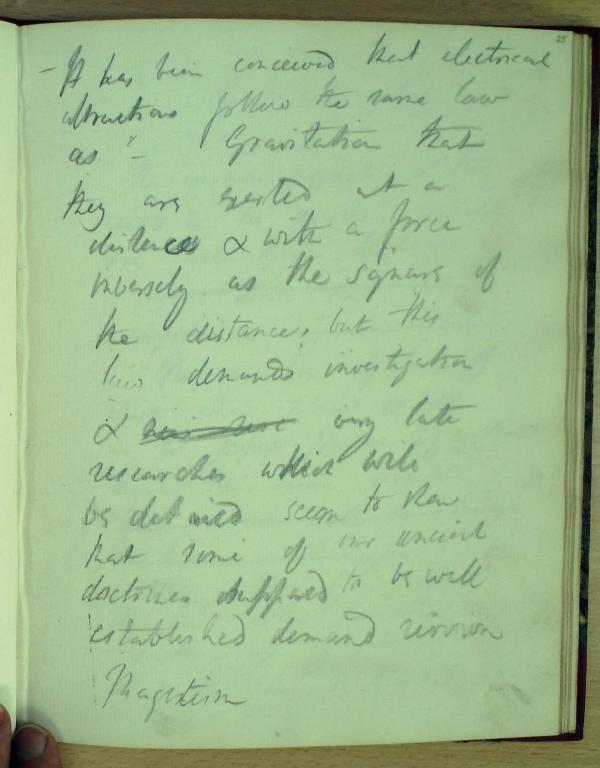 25
– It has been conceived that electrical
attractions follow the same law
as " – Gravitation that
they are exerted at a
distance & with a force
inversely as the square of
the distance, but this
law demands investigation
& very late
researches which will
be detailed seem to shew
that some of our ancient
doctrines supposed to be well
established demand revision
Magnetism